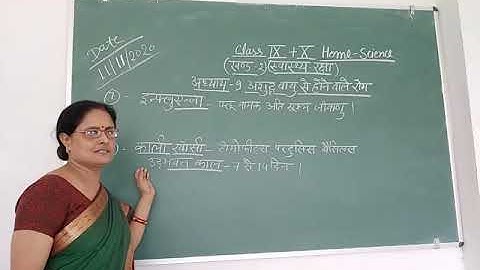 Date
11/11/2020
Class IX + X Home-Science
(खण्ड-2) (स्वास्थ्य रक्षा)
अध्याय-9 अशुद्ध वायु से होने वाले रोग
इन्फ्लुएन्जा - फ्लू नामक अति सूक्ष्म जीवाणु ।
काली खाँसी - हीमोफीलस परटुसिस बैसिलस
उद्भवन काल - 7 से 14 दिन ।